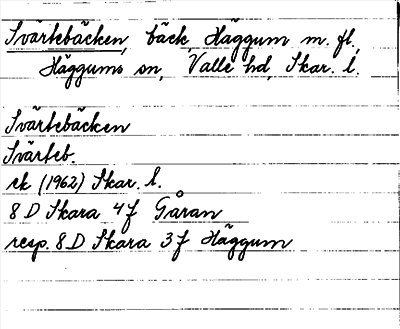 Svärtebäcken, bäck, Häggum m. fl.,
Häggums sn, Valle hd, Skar. l.
Svärtebäcken
Svärteb.
ek (1962) Skar. l.
8 D Skara 4f Gåran
resp. 8 D Skara 3f Häggum